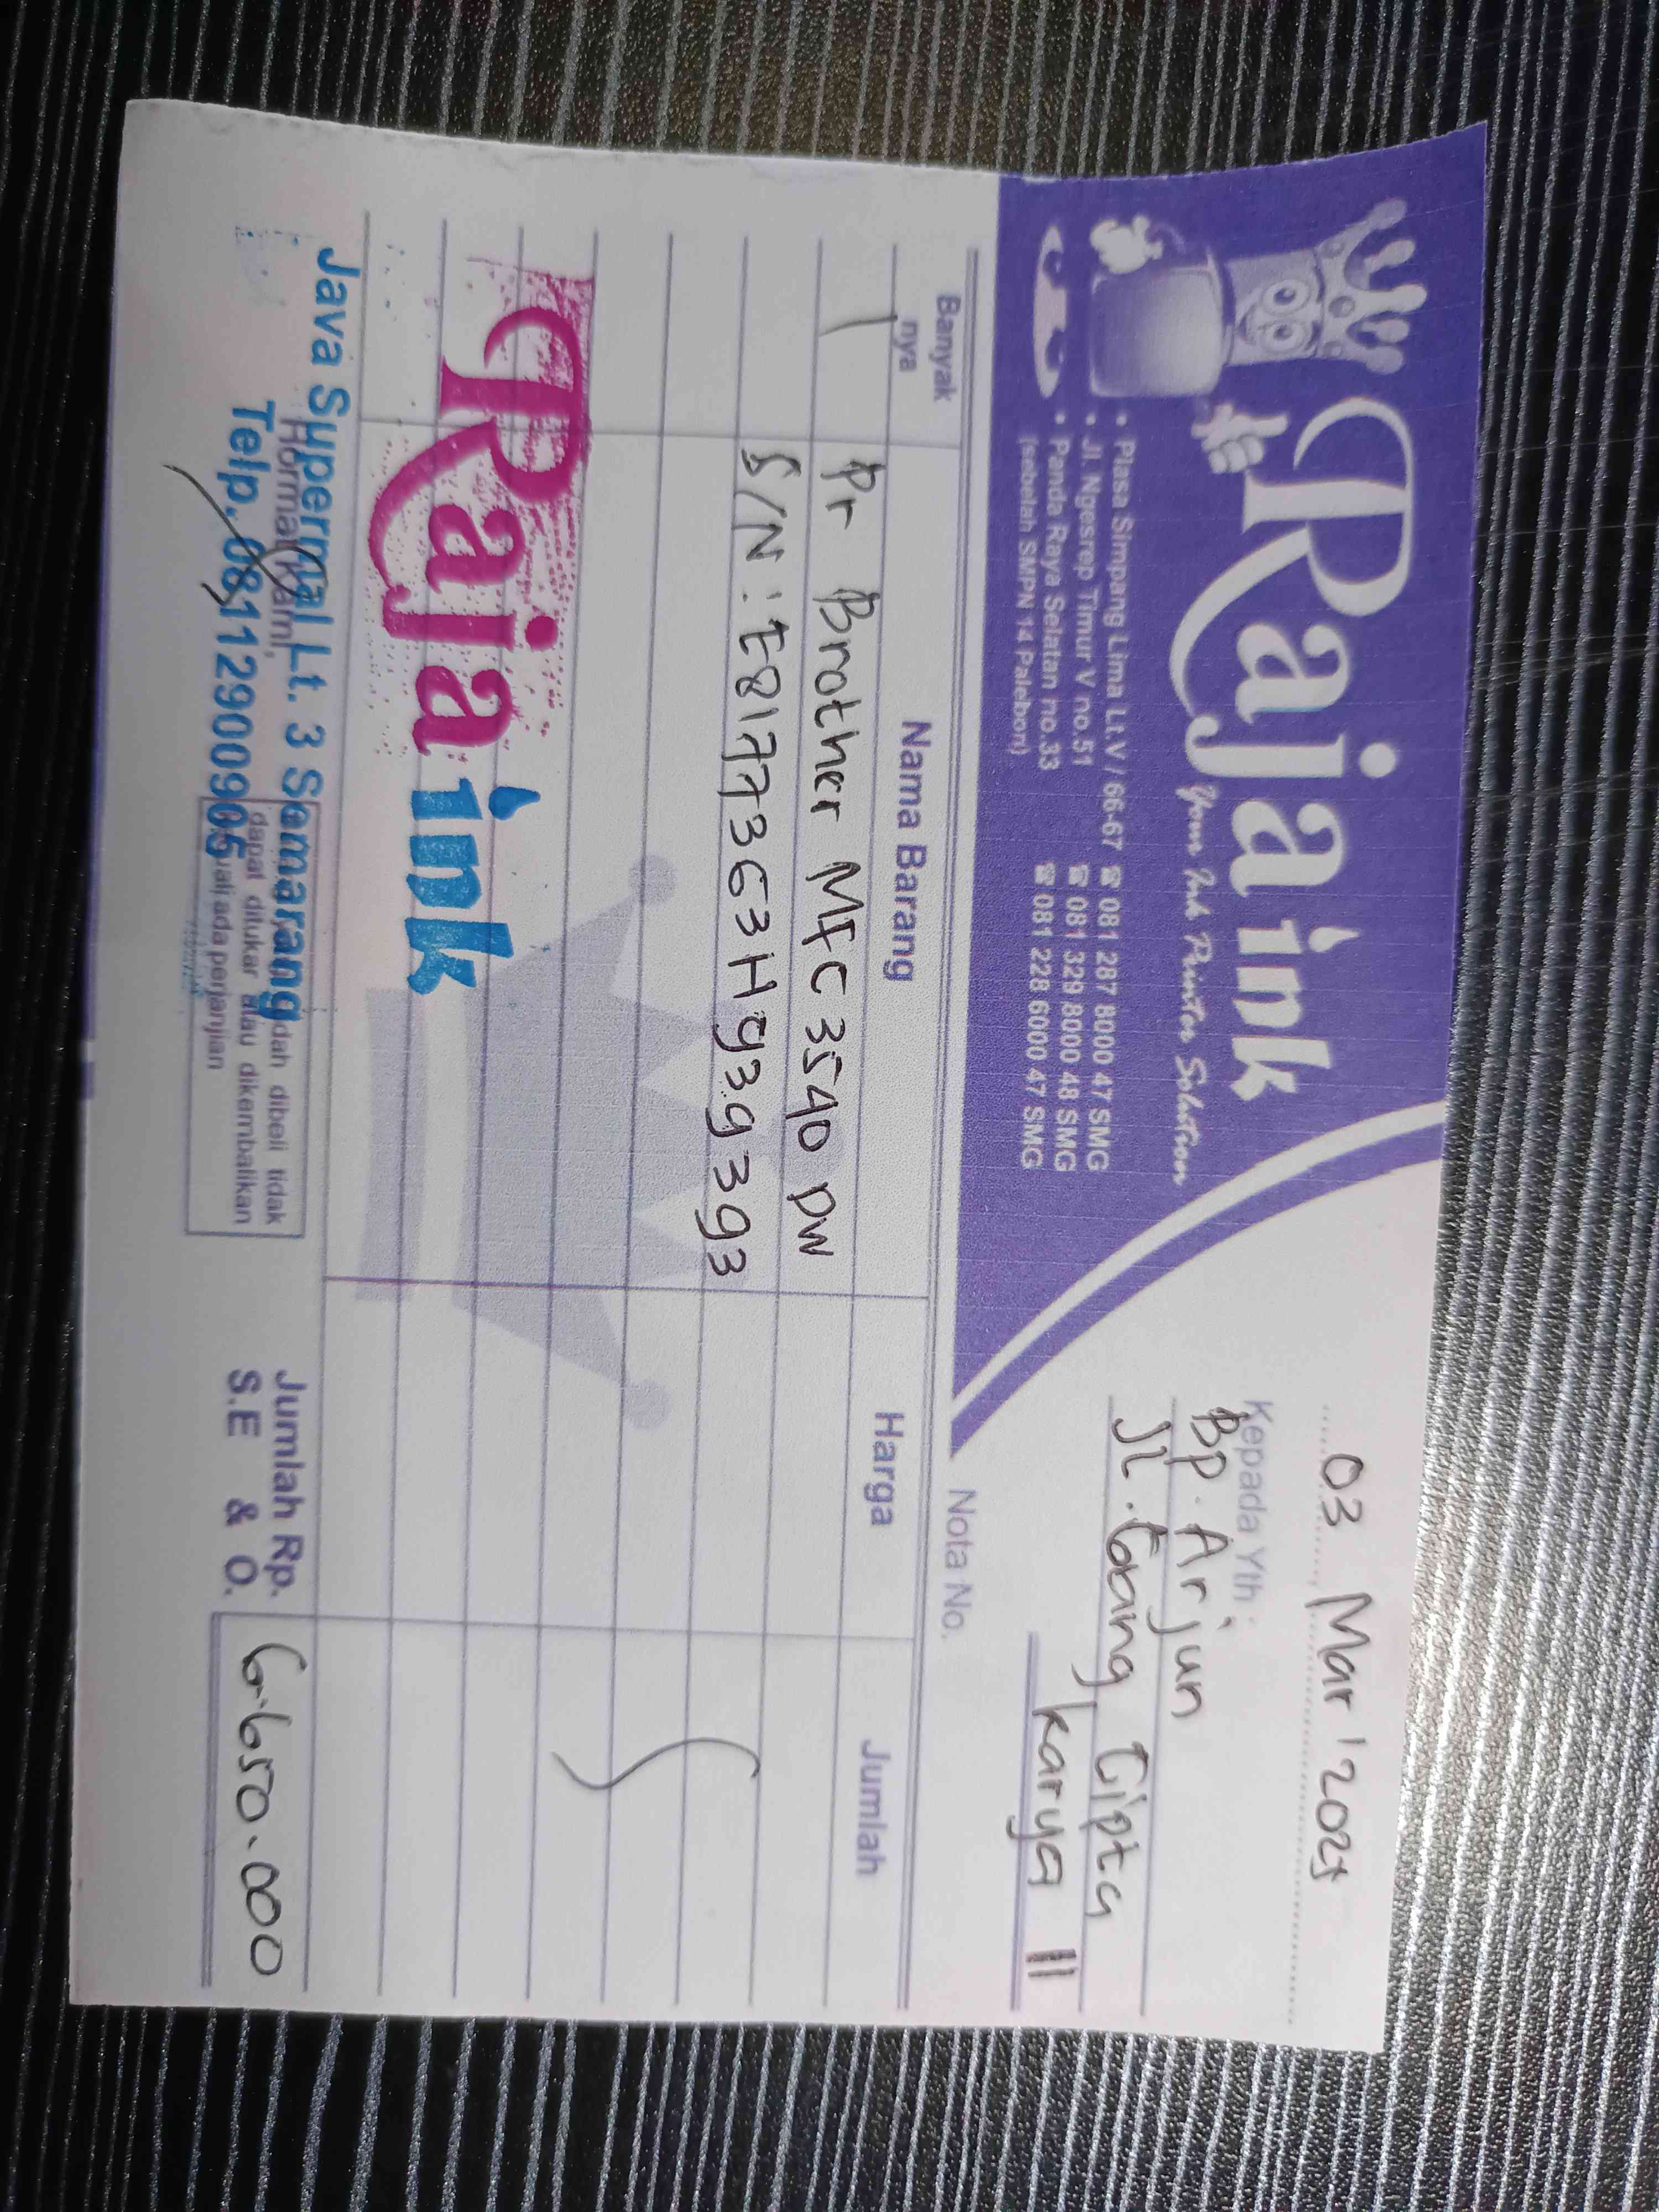 Raja ink
Your Ink Printer Solution
• Plasa Simpang Lima Lt.V / 66-67 ☎ 081 287 8000 47 SMG
• Jl. Ngesrep Timur V no.51 ☎ 081 329 8000 48 SMG
• Panda Raya Selatan no.33 ☎ 081 228 6000 47 SMG
(sebelah SMPN 14 Palebon)
03 Mar '2025
Kepada Yth :
Bp. Arjun
Jl. Gbang Cipta
Karya II
Nota No.
Banyak nya Nama Barang Harga Jumlah
1 Pr Brother MFC 3540 DW
S/N : E81773G3H939393
Raja ink
Java Supermal Lt. 3 Semarang
Telp. 081129000905
Hormat kami,
dah dibeli tidak
dapat ditukar atau dikembalikan
ada perjanjian
Jumlah Rp. 6.650.000
S.E & O.